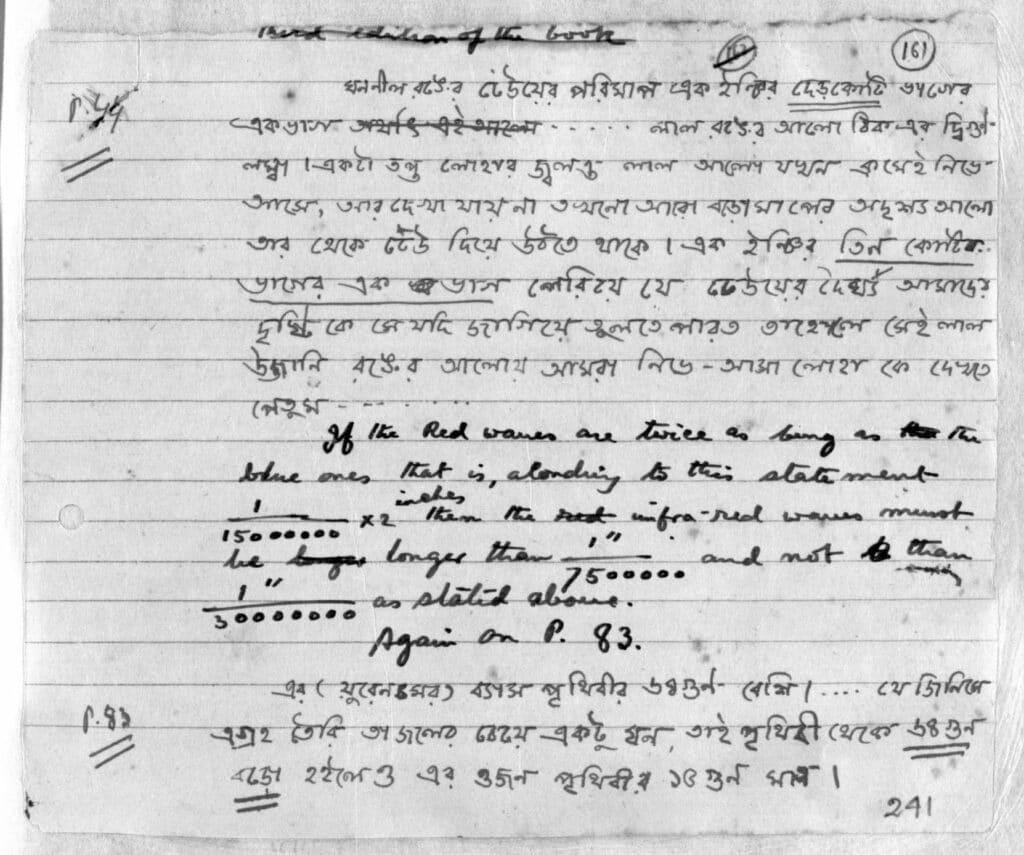 Third edition of the book
161
P. 44
ঘননীল রঙের ঢেউয়ের পরিমাপ এক ইঞ্চির দেড়কোটি ভাগের
একভাগ অর্থাৎ এই আলো ..... লাল রঙের আলো ঠিক এর দ্বিগুণ
লম্বা। একটা তপ্ত লোহার জ্বলন্ত লাল আলো যখন ক্রমেই নিভে
আসে, আর দেখা যায় না তখনো আরো বড়ো মাপের অদৃশ্য আলো
তার থেকে ঢেউ দিয়ে উঠতে থাকে। এক ইঞ্চির তিন কোটি
ভাগের এক ভাগ পেরিয়ে যে ঢেউয়ের দৈর্ঘ্য আমাদের
দৃষ্টি কে সে যদি জাগিয়ে তুলতে পারত তাহোলে সেই লাল
উজানি রঙের আলোয় আমরা নিভে-আসা লোহা কে দেখতে
পেতুম - ......
If the Red waves are twice as long as the the
blue ones that is, according to this statement
1/15000000 x2 inches then the red infra-red waves must
be longer longer than 1"/7500000 and not than
1"/30000000 as stated above.
Again on P. 83.
P. 83
এর (য়ুরেনসের) ব্যাস পৃথিবীর ৬৪ গুণ বেশি। .... যে জিনিসে
এগ্রহ তৈরি তা জলের চেয়ে একটু ঘন, তাই পৃথিবী থেকে ৬৪ গুন
বড়ো হইলেও এর ওজন পৃথিবীর ১৫ গুন মাত্র।
241